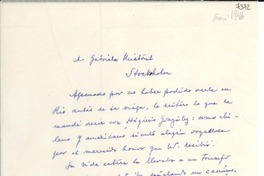 A Gabriela Mistral
Stockholm
Apenado por no haber podido verla en
Río antes de su viaje, le reitero lo que la
mandé decir con Higinio González: como chi-
leno y americano siento alegría orgullosa
por el merecido honor que Ud. recibió.
Su vida entera la llevaba a un triunfo